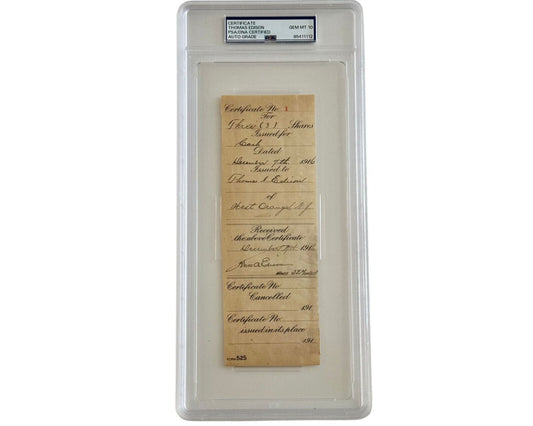 CERTIFICATE
THOMAS EDISON
PSA/DNA CERTIFIED
AUTO GRADE
GEM MT 10
85411112
Certificate No. 1
For
Three (3) Shares
Issued for
Cash
Dated
December 7th 1916
Issued to
Thomas A Edison
of
West Orange N.J.
Received
the above Certificate
December 191
Certificate No.
Cancelled
191
Certificate No.
issued in its place
191
FORM 525